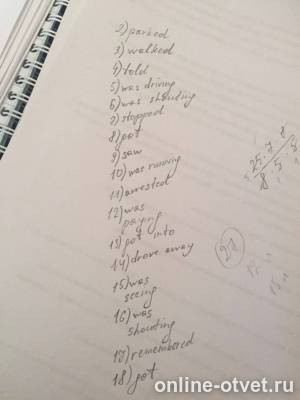 2) parked
3) walked
4) told
5) was driving
6) was shouting
7) stopped
8) got
9) saw
10) was running
11) arrested
12) was
paying
13) got into
14) drove away
15) was
seeing
16) was
shouting
17) remembered
18) got
28
online-otvet.ru